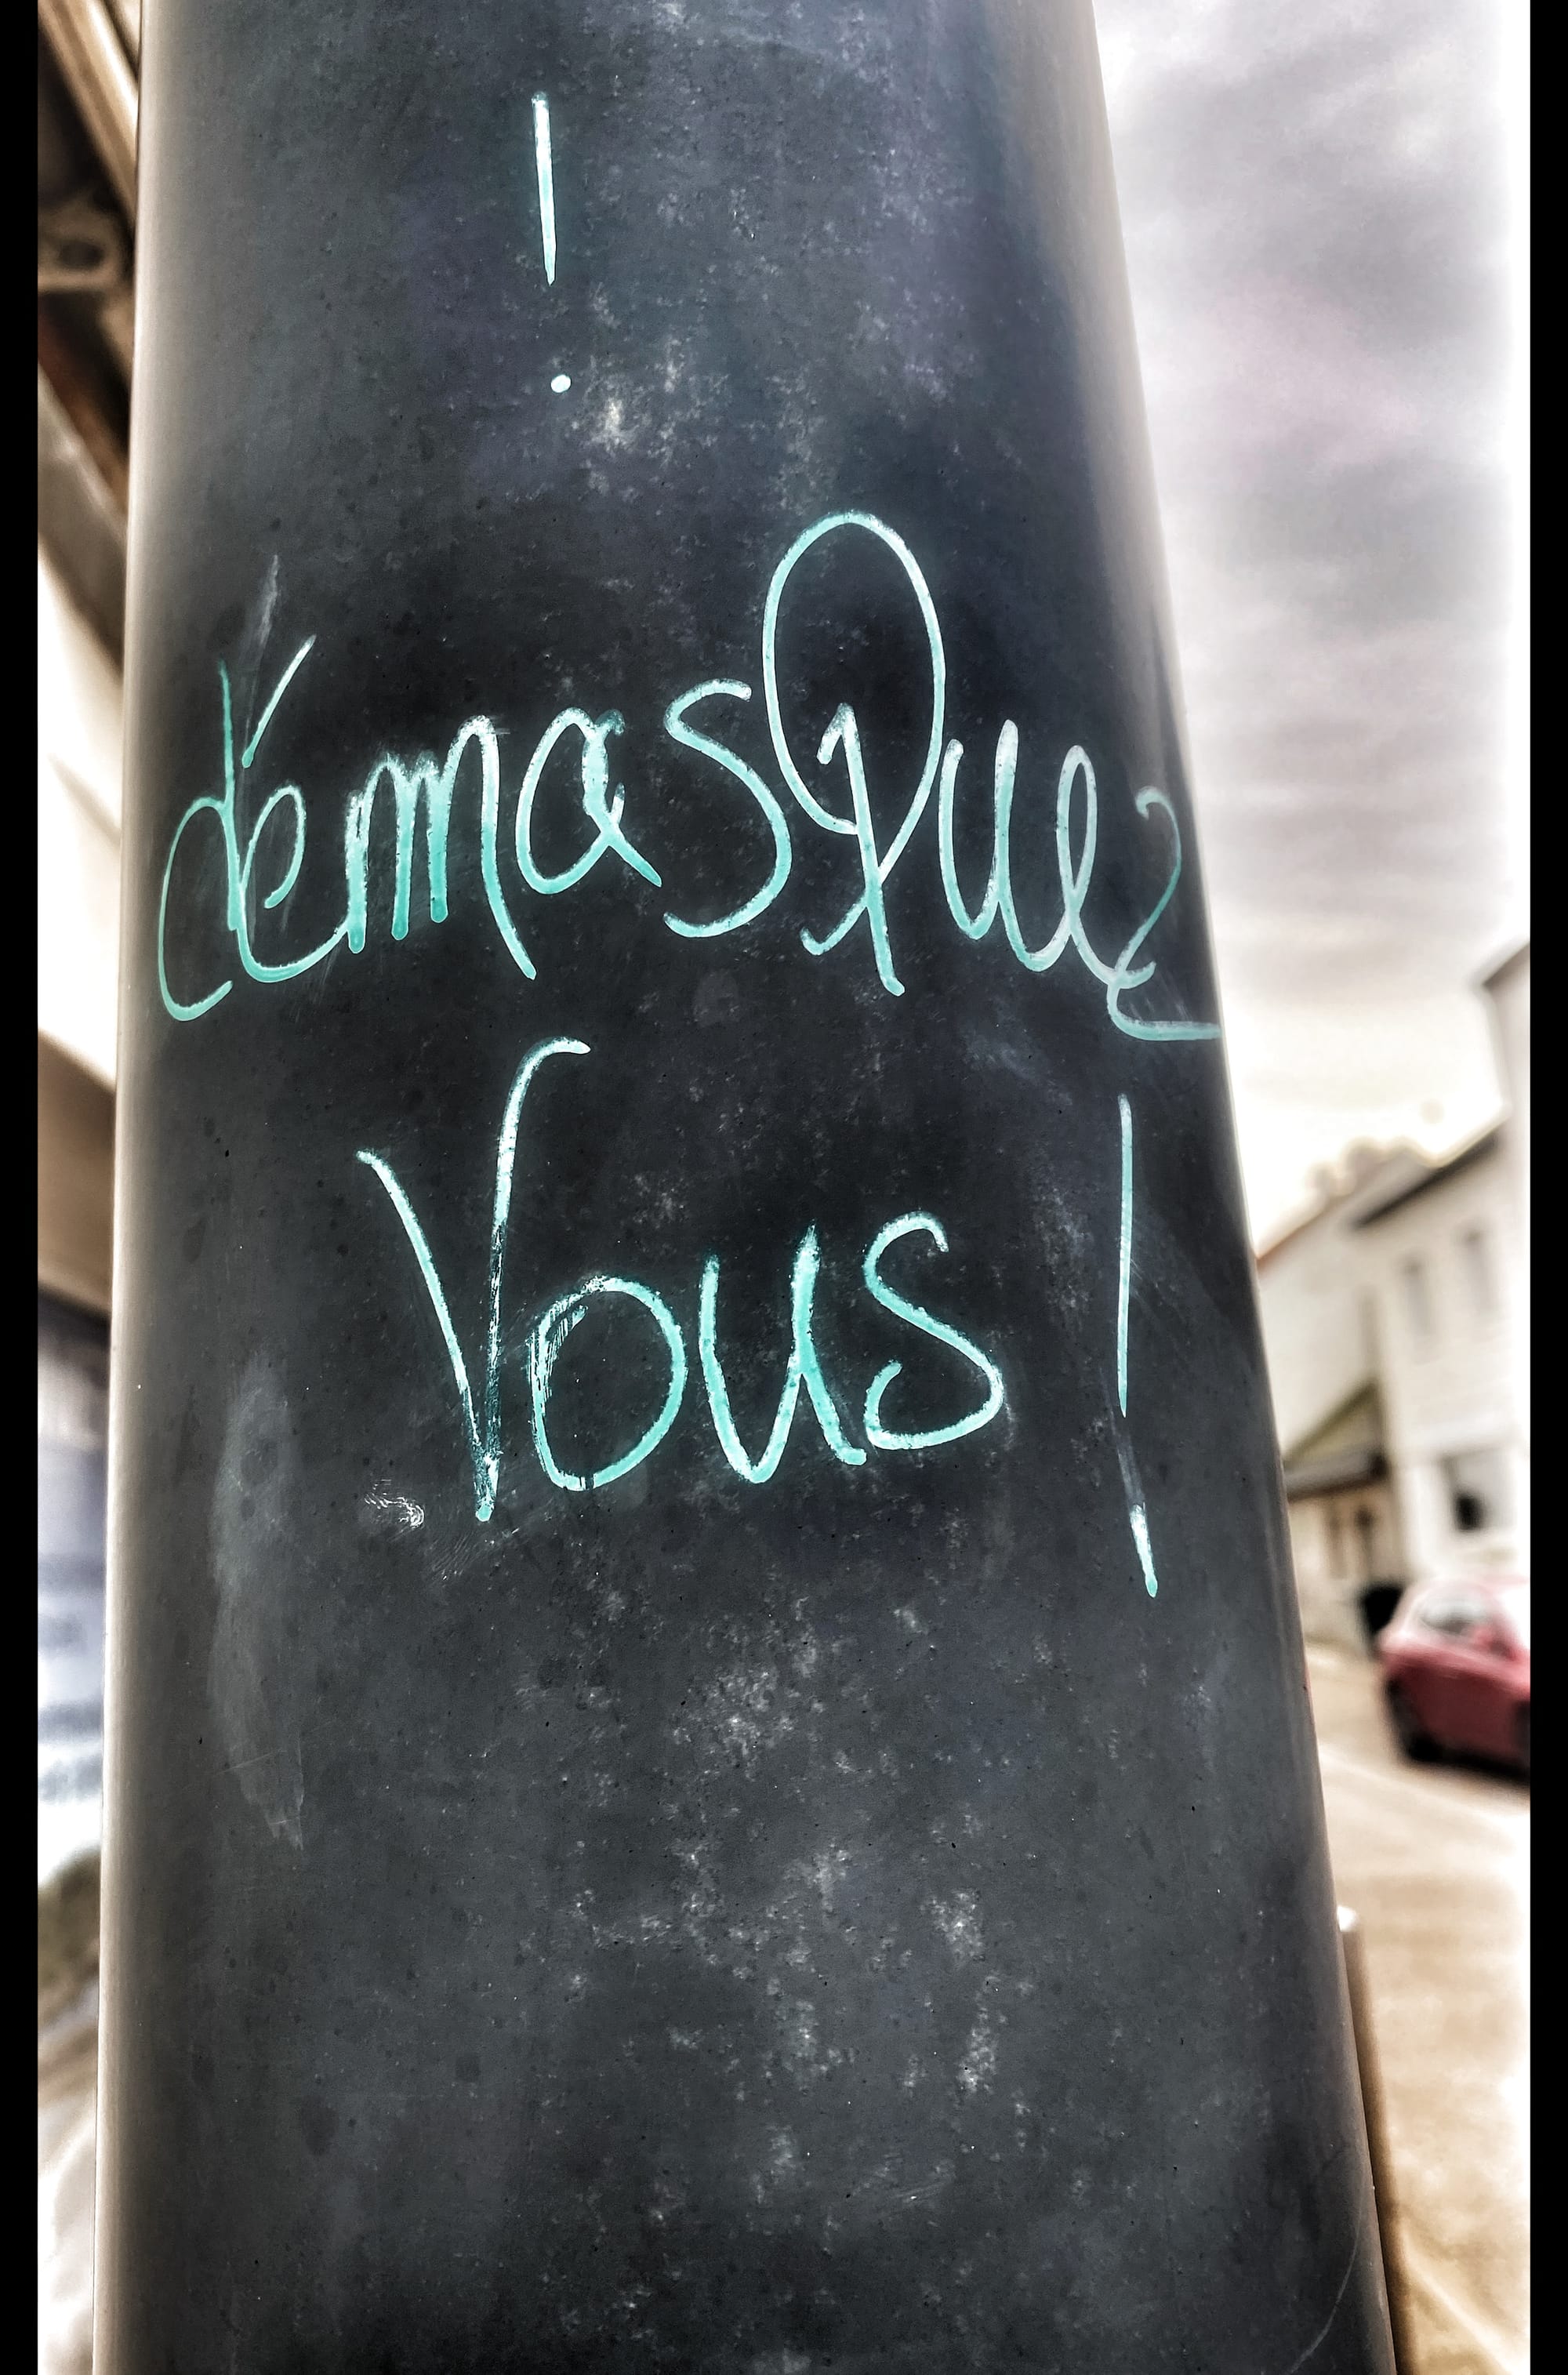 !
démasQuez
Vous!